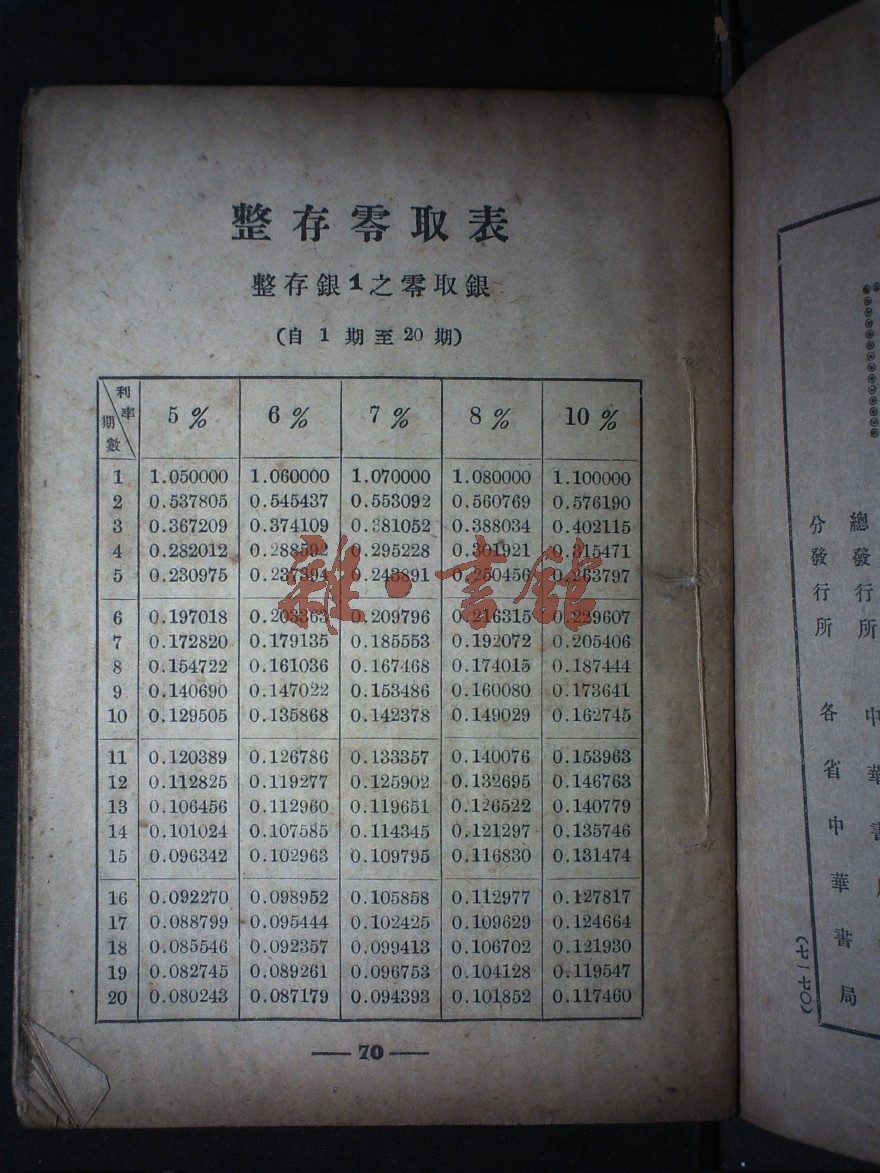 整存零取表
整存銀1之零取銀
(自 1 期至 20 期)
利率 期數 5% 6% 7% 8% 10%
1 1.050000 1.060000 1.070000 1.080000 1.100000
2 0.537805 0.545437 0.553092 0.560769 0.576190
3 0.367209 0.374109 0.381052 0.388034 0.402115
4 0.282012 0.288592 0.295228 0.301921 0.315471
5 0.230975 0.237394 0.243891 0.250456 0.263797
6 0.197018 0.203363 0.209796 0.216315 0.229607
7 0.172820 0.179135 0.185553 0.192072 0.205406
8 0.154722 0.161036 0.167468 0.174015 0.187444
9 0.140690 0.147022 0.153486 0.160080 0.173641
10 0.129505 0.135868 0.142378 0.149029 0.162745
11 0.120389 0.126786 0.133357 0.140076 0.153963
12 0.112825 0.119277 0.125902 0.132695 0.146763
13 0.106456 0.112960 0.119651 0.126522 0.140779
14 0.101024 0.107585 0.114345 0.121297 0.135746
15 0.096342 0.102963 0.109795 0.116830 0.131474
16 0.092270 0.098952 0.105858 0.112977 0.127817
17 0.088799 0.095444 0.102425 0.109629 0.124664
18 0.085546 0.092357 0.099413 0.106702 0.121930
19 0.082745 0.089261 0.096753 0.104128 0.119547
20 0.080243 0.087179 0.094393 0.101852 0.117460
— 70 —
雜·書館
總發行所 中華書
分發行所 各省中華書局
(七一七〇)